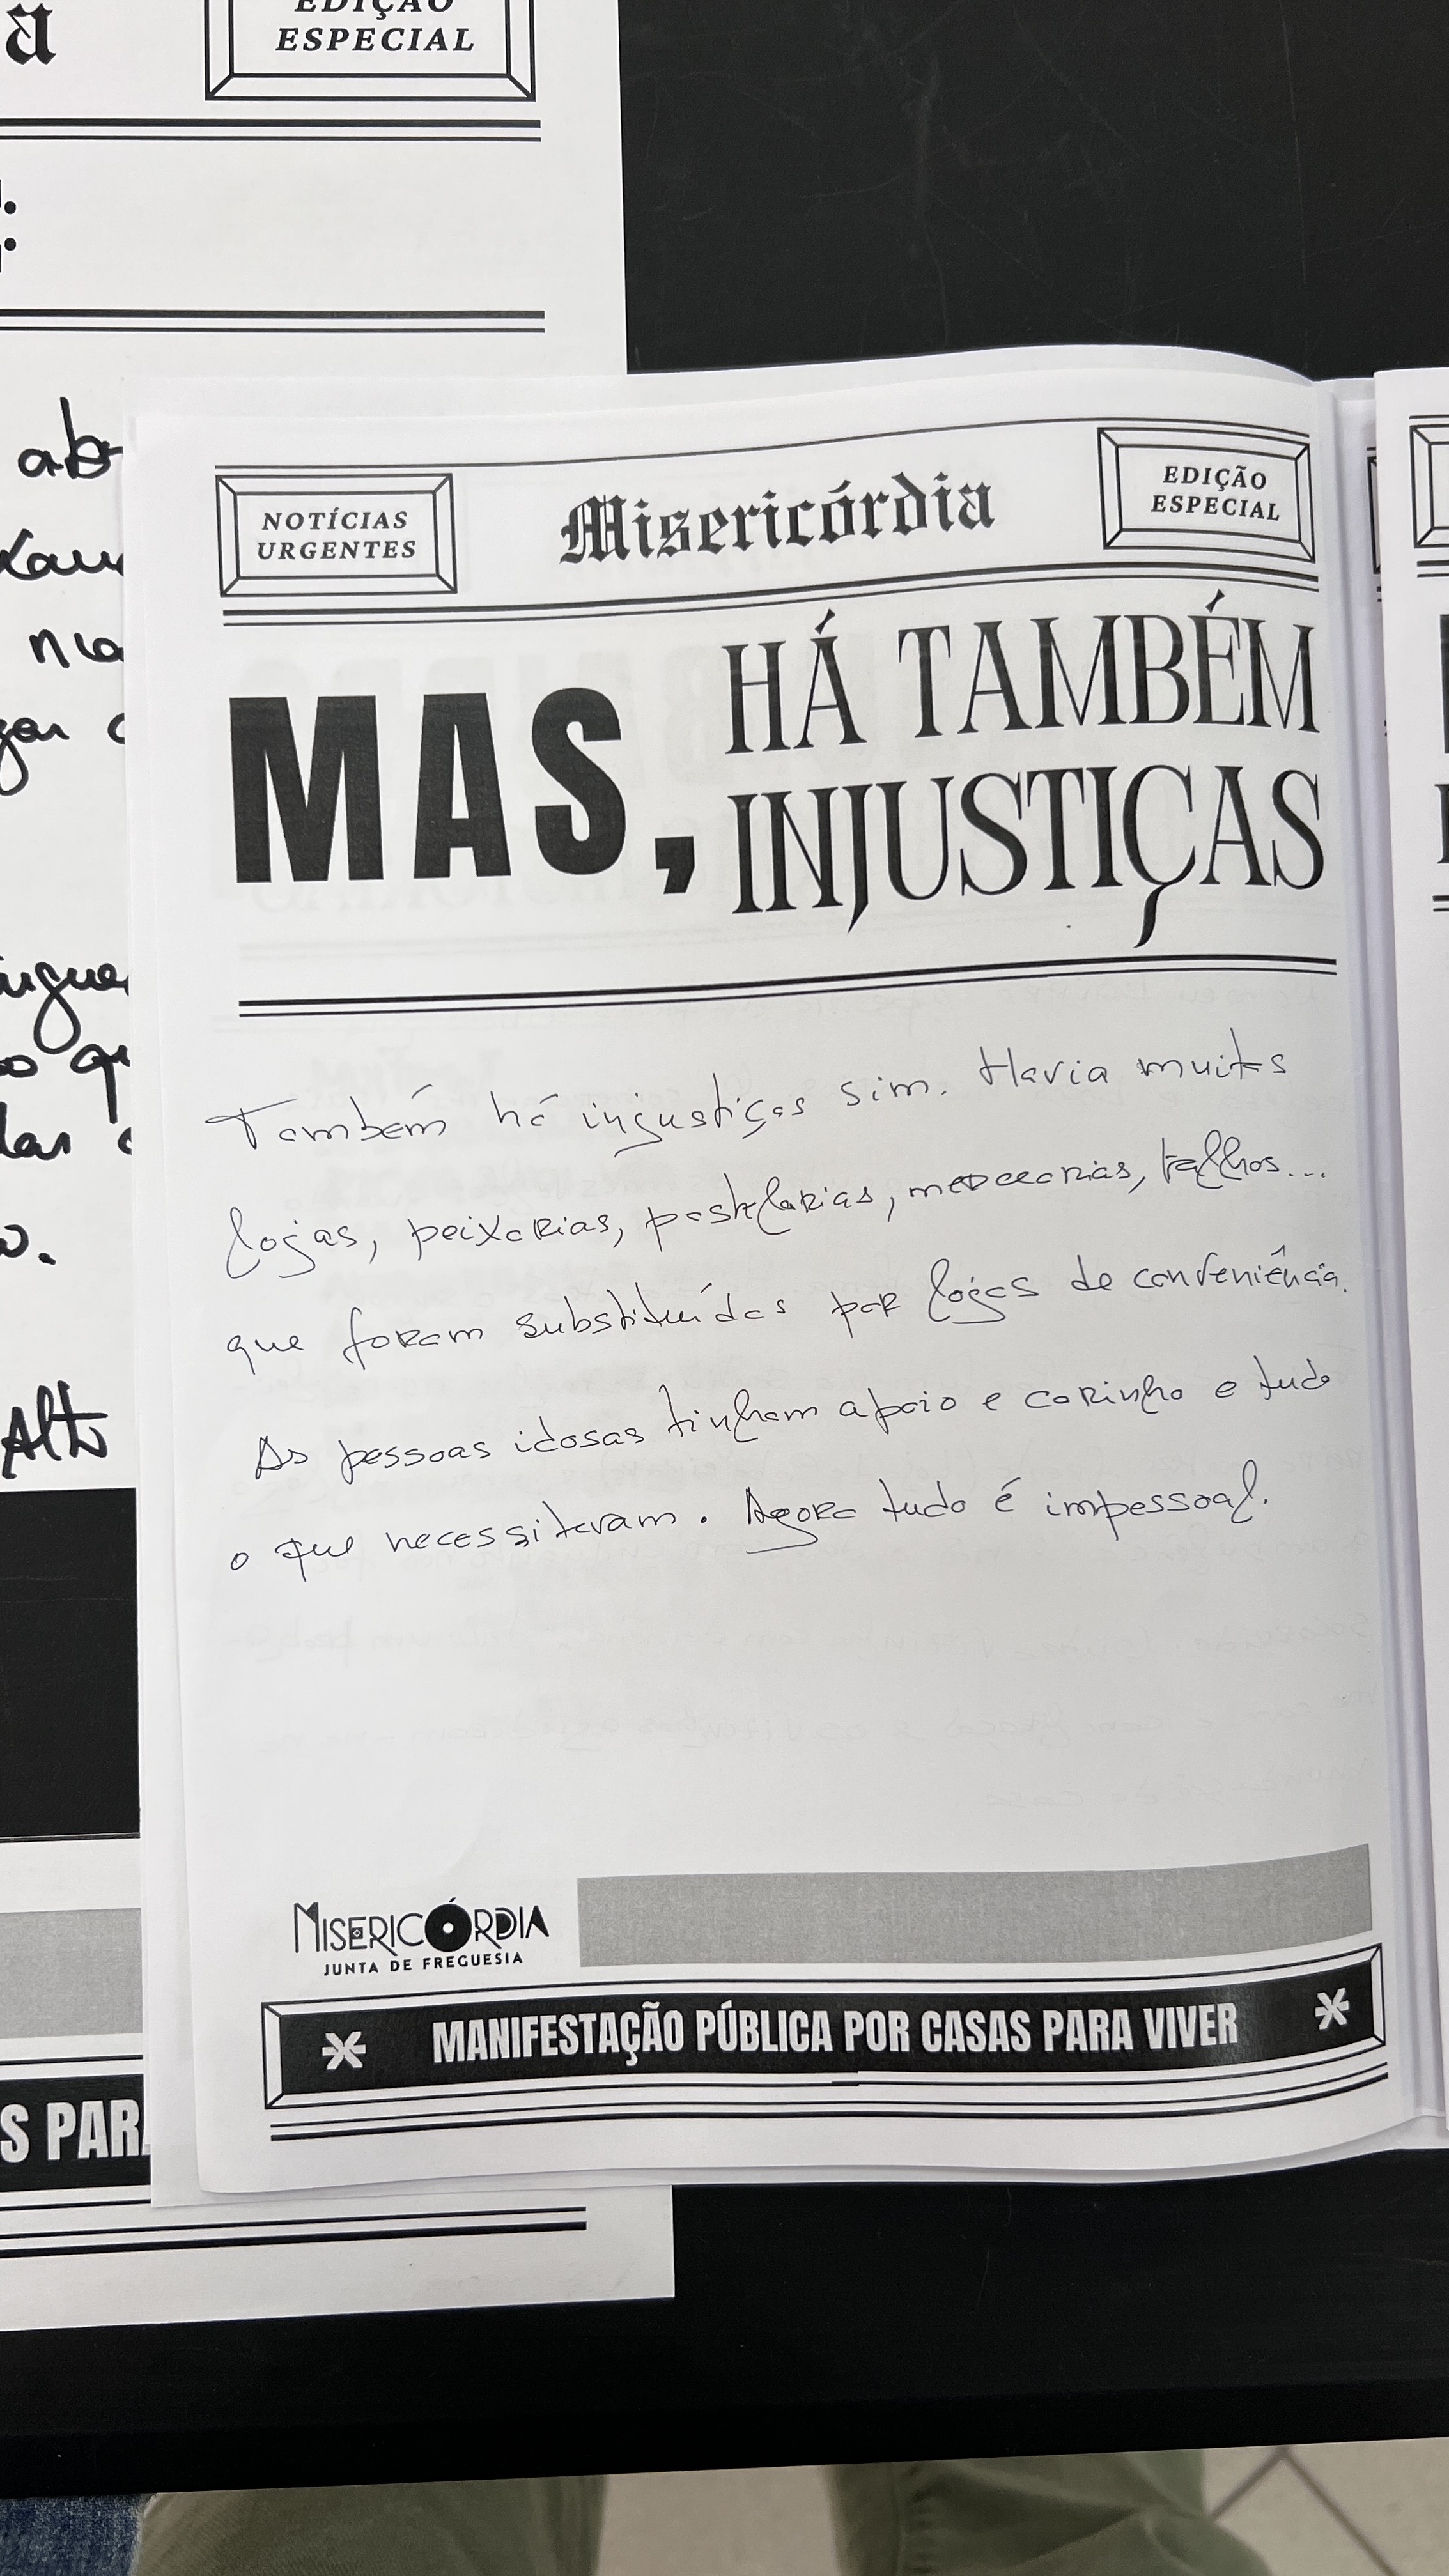 a
EDIÇÃO
ESPECIAL
ab
na
Alto
S PARA
NOTÍCIAS
URGENTES
Misericórdia
EDIÇÃO
ESPECIAL
MAS,
HÁ TAMBÉM
INJUSTIÇAS
Também há injustiças sim. Havia muitas
lojas, peixarias, pastelarias, mercearias, talhos...
que foram substituídas por lojas de conveniência.
As pessoas idosas tinham apoio e carinho e tudo
o que necessitavam. Agora tudo é impessoal.
MISERICÓRDIA
JUNTA DE FREGUESIA
MANIFESTAÇÃO PÚBLICA POR CASAS PARA VIVER